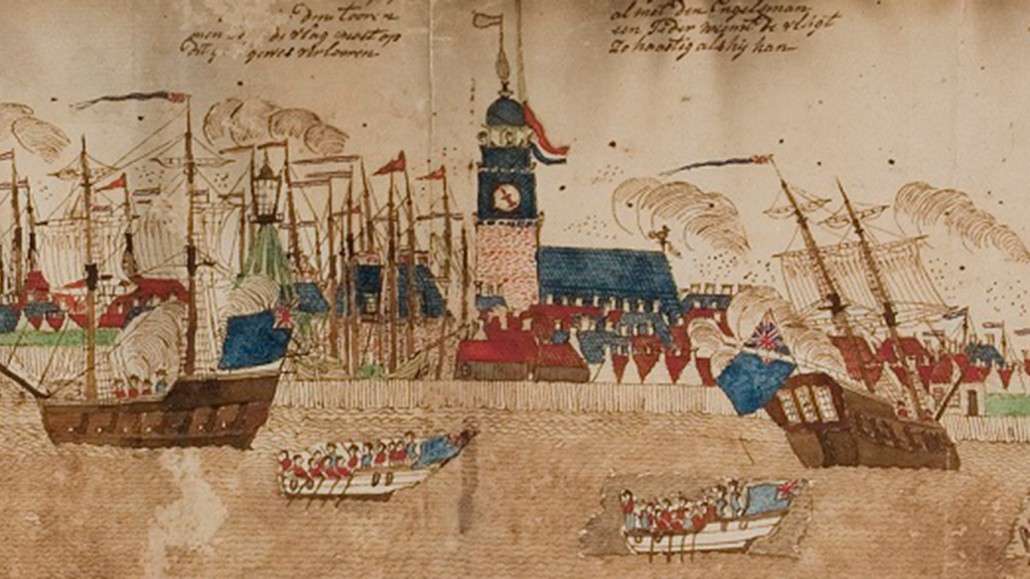 men de vlag moest op
dit gewes verlooren
al met den Engelsman
een Ieder neemt de vlügt
Zo haastig als hij kan